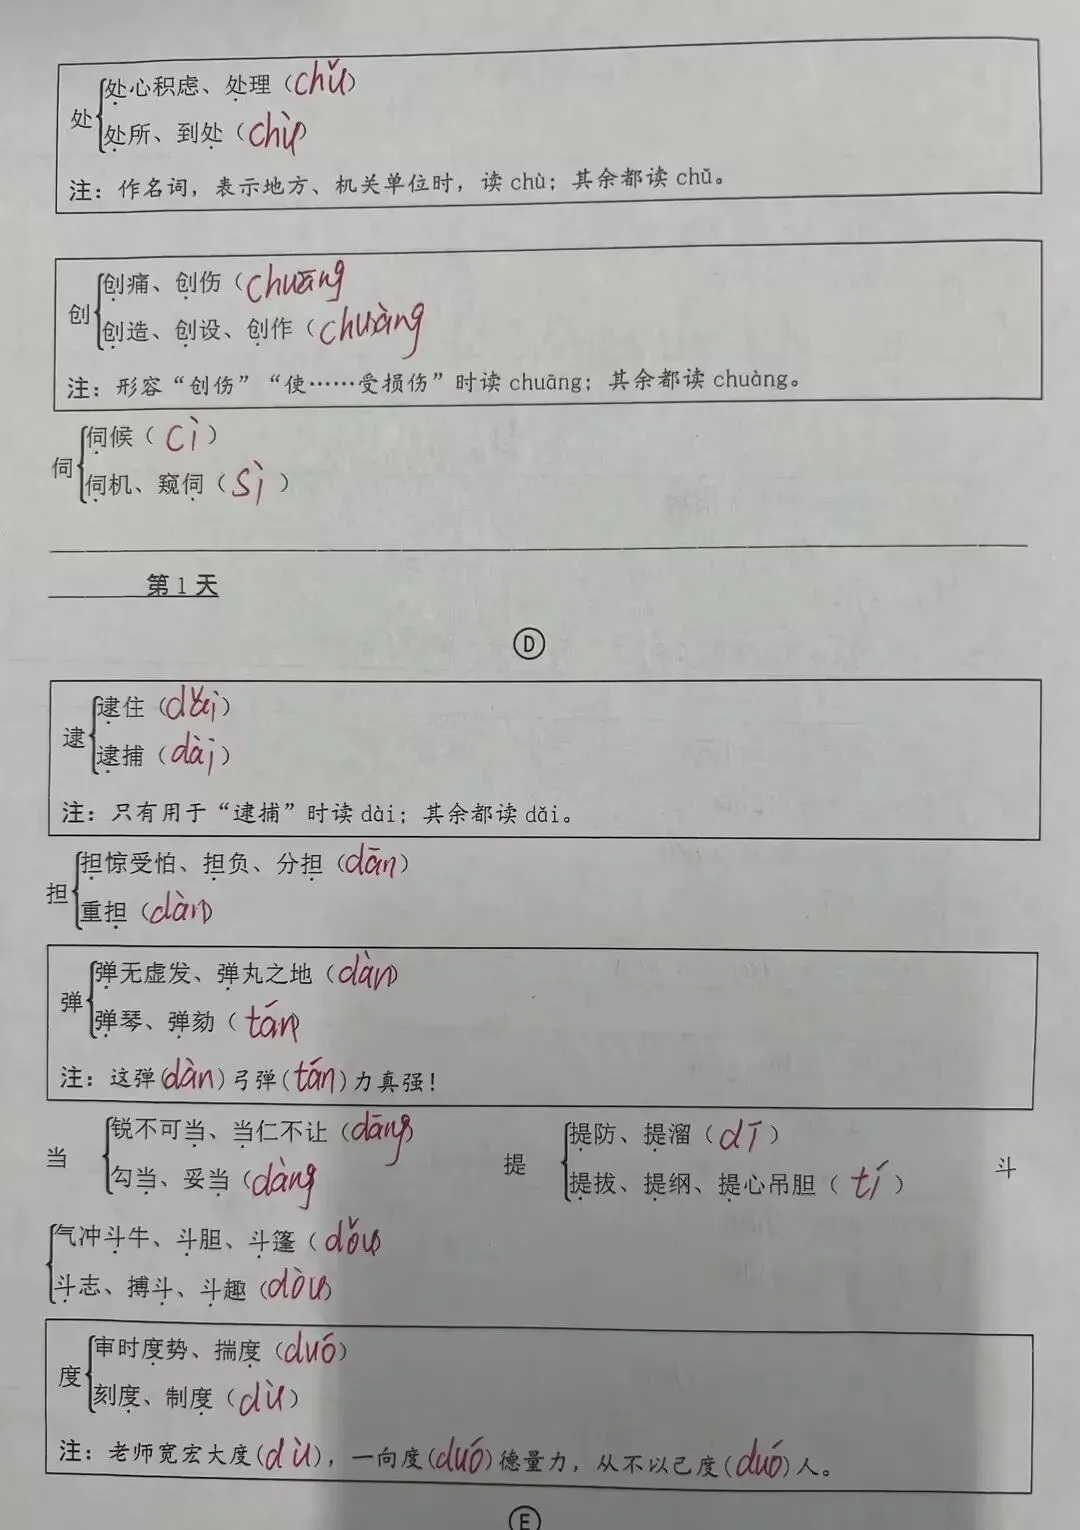 处心积虑、处理（chǔ）
处
处所、到处（chù）
注：作名词，表示地方、机关单位时，读 chù；其余都读 chǔ。
创痛、创伤（chuāng
创
创造、创设、创作（chuàng
注：形容“创伤”“使……受损伤”时读 chuāng；其余都读 chuàng。
伺候（cì）
伺
伺机、窥伺（sì）
第 1 天
D
逮住（dǎi）
逮
逮捕（dài）
注：只有用于“逮捕”时读 dài；其余都读 dǎi。
担惊受怕、担负、分担（dān）
担
重担（dàn）
弹无虚发、弹丸之地（dàn）
弹
弹琴、弹劾（tán）
注：这弹(dàn)弓弹(tán)力真强！
锐不可当、当仁不让（dāng） 提防、提溜（dī）
当 提 斗
勾当、妥当（dàng 提拔、提纲、提心吊胆（tí）
气冲斗牛、斗胆、斗篷（dǒu
斗志、搏斗、斗趣（dòu）
审时度势、揣度（duó）
度
刻度、制度（dù）
注：老师宽宏大度(dù)，一向度(duó)德量力，从不以己度(duó)人。
E